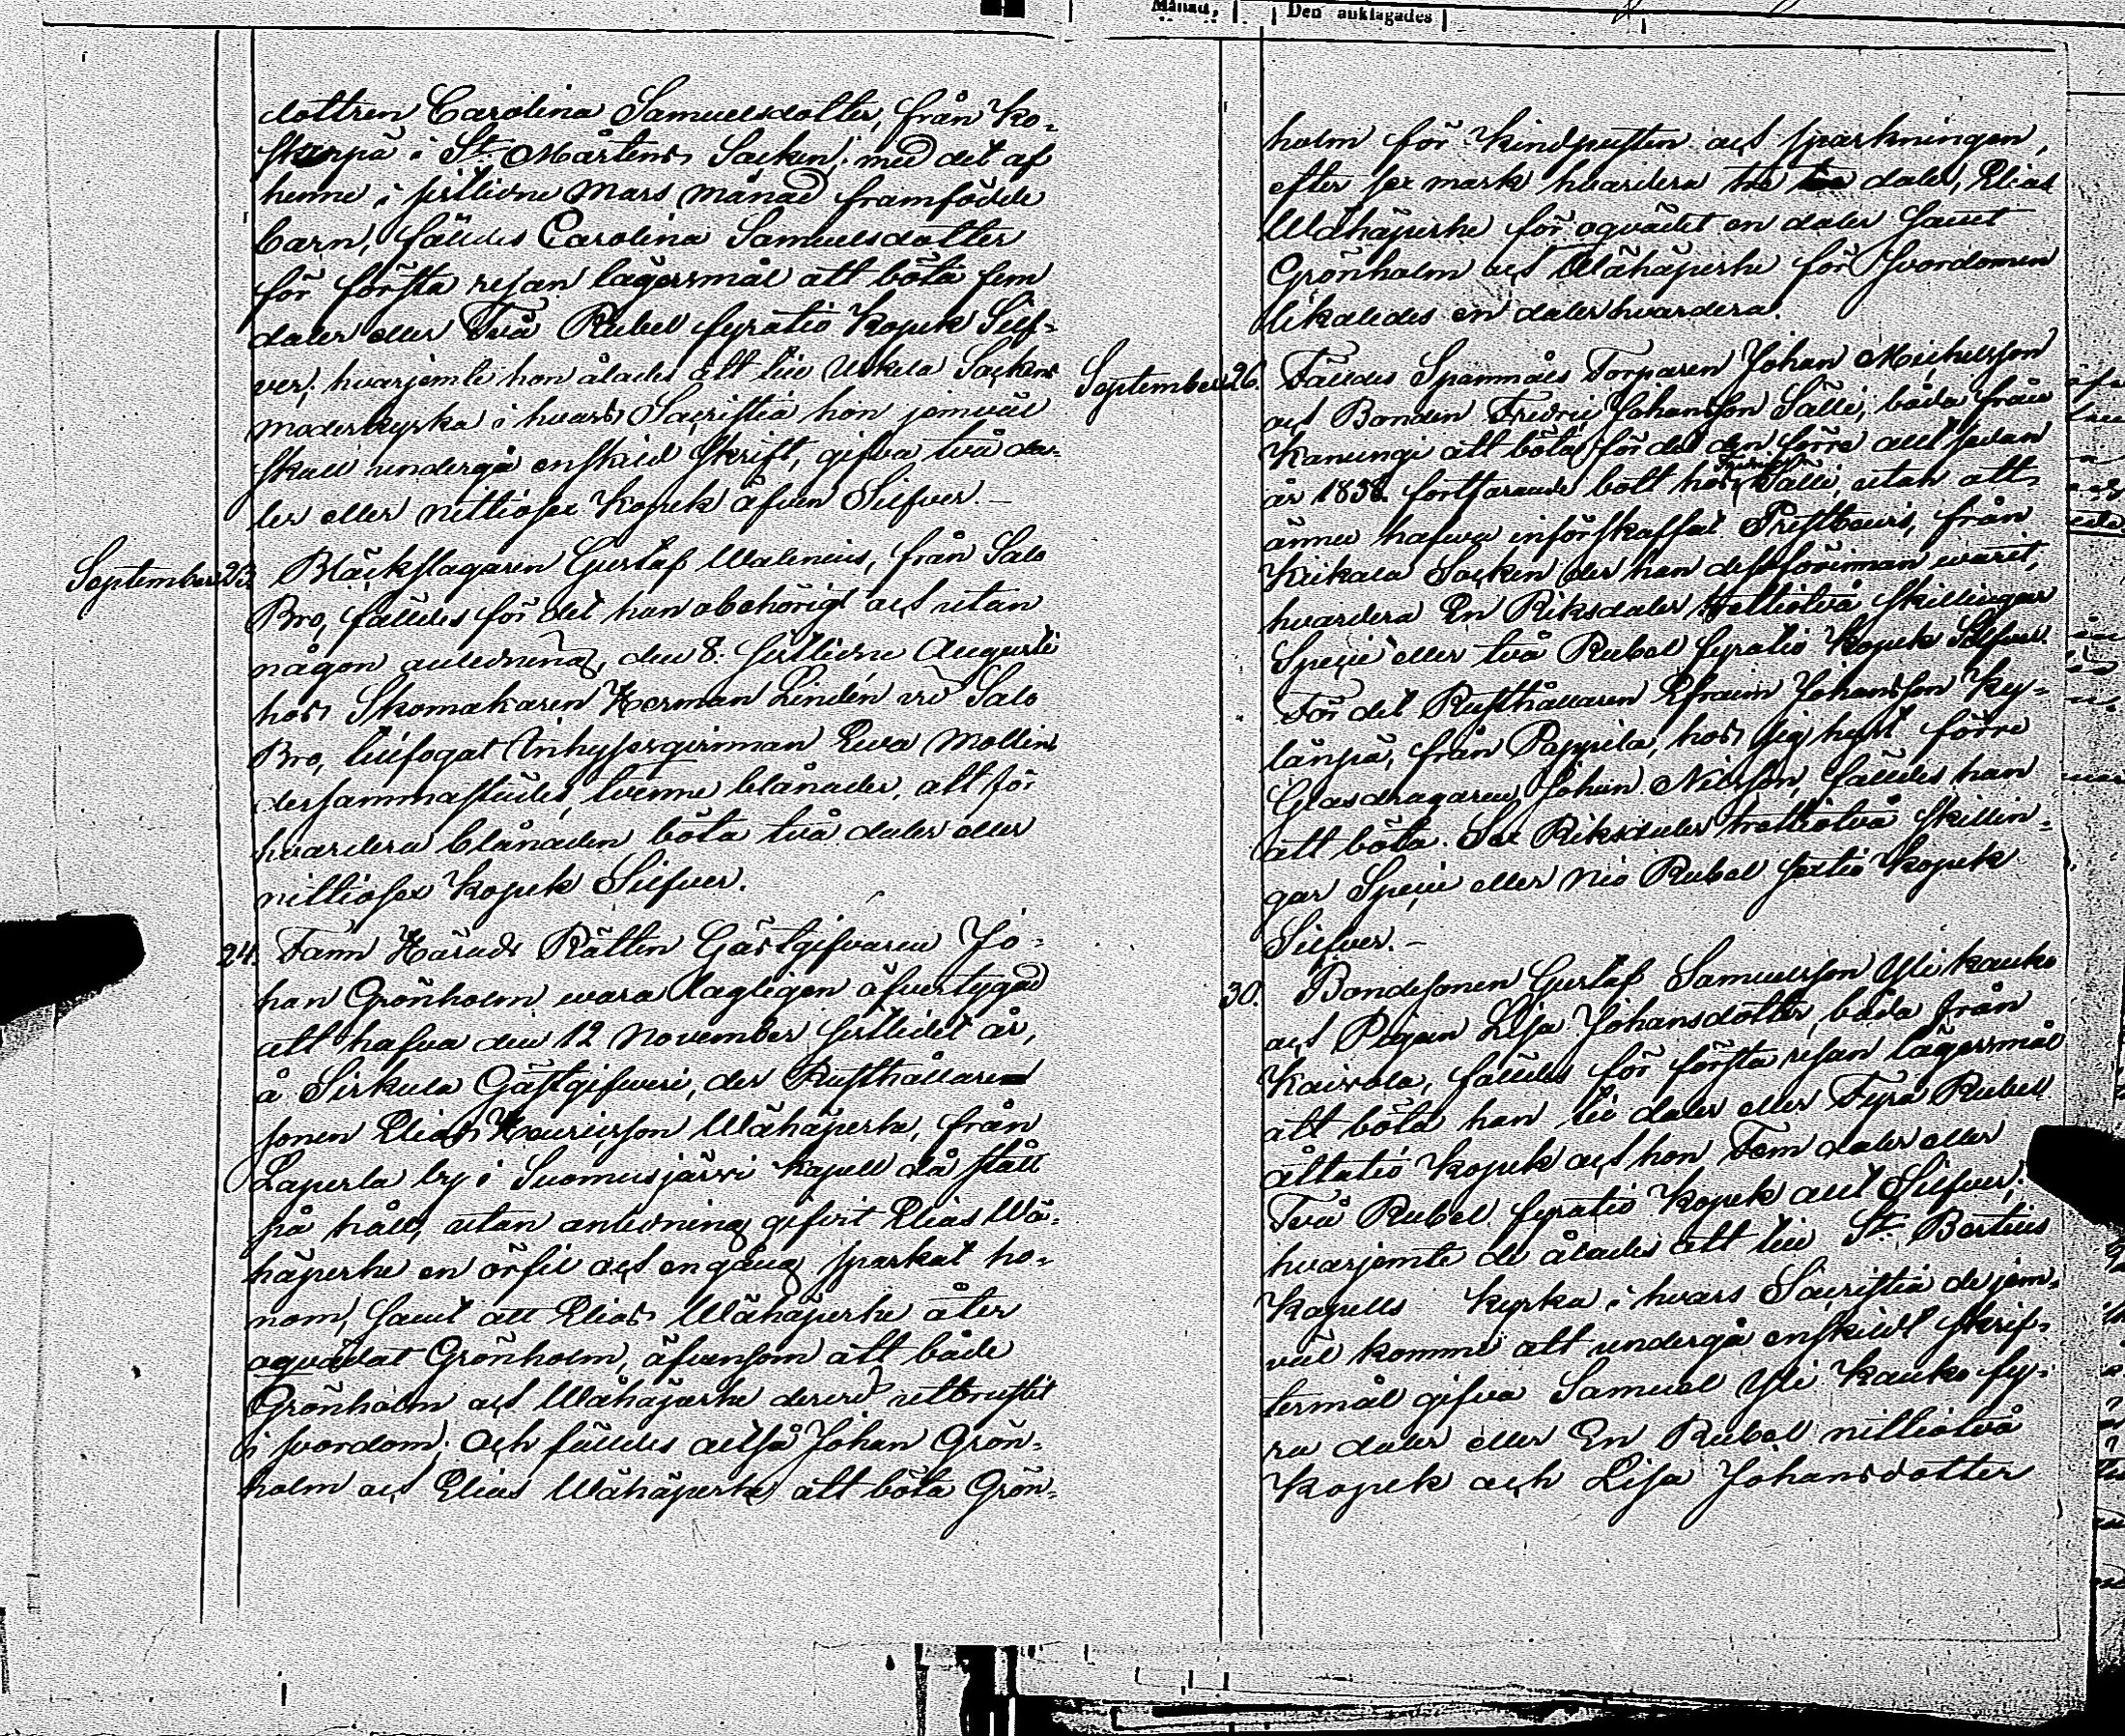 Månad,
Den anklagades
dottren Carolina Samuelsdotter, från Ko-
skenpä i St Mårtens Socken, med det af
henne i sistlidne Mars månad framfödde
barn, fälldes Carolina Samuelsdotter
för första resan lägersmål att böta fem
daler eller Två Rubel fyratio Kopek Silf-
ver; hvarjemte hon ålades att till Uskela Sockens
moderkyrka i hvars Sacristia hon jemväl
skall undergå enskild skrift, gifva två da-
ler eller nittiosex Kopek äfven Silfver. —
September 23. Bläckslagaren Gustaf Walenius, från Salo
Bro, fälldes för det han obehörigt och utan
någon anledning, den 8. sistlidne Augusti
hos Skomakaren Herman Lindén vid Salo
Bro, tillfogat Inhysesqvinnan Ewa Mollin
dersammastädes, tvenne blånader, att för
hvardera blånaden böta två daler eller
nittiosex Kopek Silfver.
24. Fann Härads Rätten Gästgifvaren Jo-
han Grönholm wara lagligen öfvertygad
att hafva den 12 November sistlidet år,
å Sirkula Gästgifveri, der Rusthållare
sonen Elias Henricsson Wähäperhe, från
Laperla by i Suomusjärvi Kapell då stått
på håll, utan anledning gifvit Elias Wä-
häperhe en örfil och en gång sparkat ho-
nom, samt att Elias Wähäperhe åter
oqvädat Grönholm, äfvensom att både
Grönholm och Wähäperhe dervid utbrustit
i svordom; Och fälldes altså Johan Grön-
holm och Elias Wähäperhe att böta Grön-
holm för kindpusten och sparkningen,
efter sex mark hvardera tre daler, Elias
Wähäperhe för oqvädet en daler samt
Grönholm och Wähäperhe för Svordomen
likaledes en daler hvardera.
September 26. Fälldes Spanmåls Torparen Johan Michelsson
och Bonden Fredric Johansson Sälli, båda från
Kanungi att böta för det den förre allt sedan
år 1858. fortfarande bott hos Fredric Sälli, utan att
ännu hafwa införskaffat Prestbevis, från
Kiikala Socken der han dessförinnan warit,
hvardera En Riksdaler trettiotvå skillingar
Specie eller två Rubel fyratio Kopek Silfver.
För det Rusthållaren Efraim Johansson Ky-
länpä, från Pappila, hos sig hyst förre
Glasdragaren Johan Nilsson, fälldes han
att böta Sex Riksdaler trettiotvå skillin-
gar Specie eller Nio Rubel sextio Kopek
Silfver. —
30. Bondesonen Gustaf Samuelsson Yli Kauko
och Pigan Lisa Johansdotter, båda från
Kaivola, fälldes för första resan lägersmål
att böta han tio daler eller Fyra Rubel
åttatio Kopek och hon Fem daler eller
Två Rubel fyratio Kopek allt Silfver;
hvarjemte de ålades att till St Bertils
Kapells Kyrka i hvars Sacristia de jem-
väl komme att undergå enskildt skrif-
termål gifva Samuel Yli Kauko fy-
ra daler eller En Rubel nittiotvå
Kopek och Lisa Johansdotter